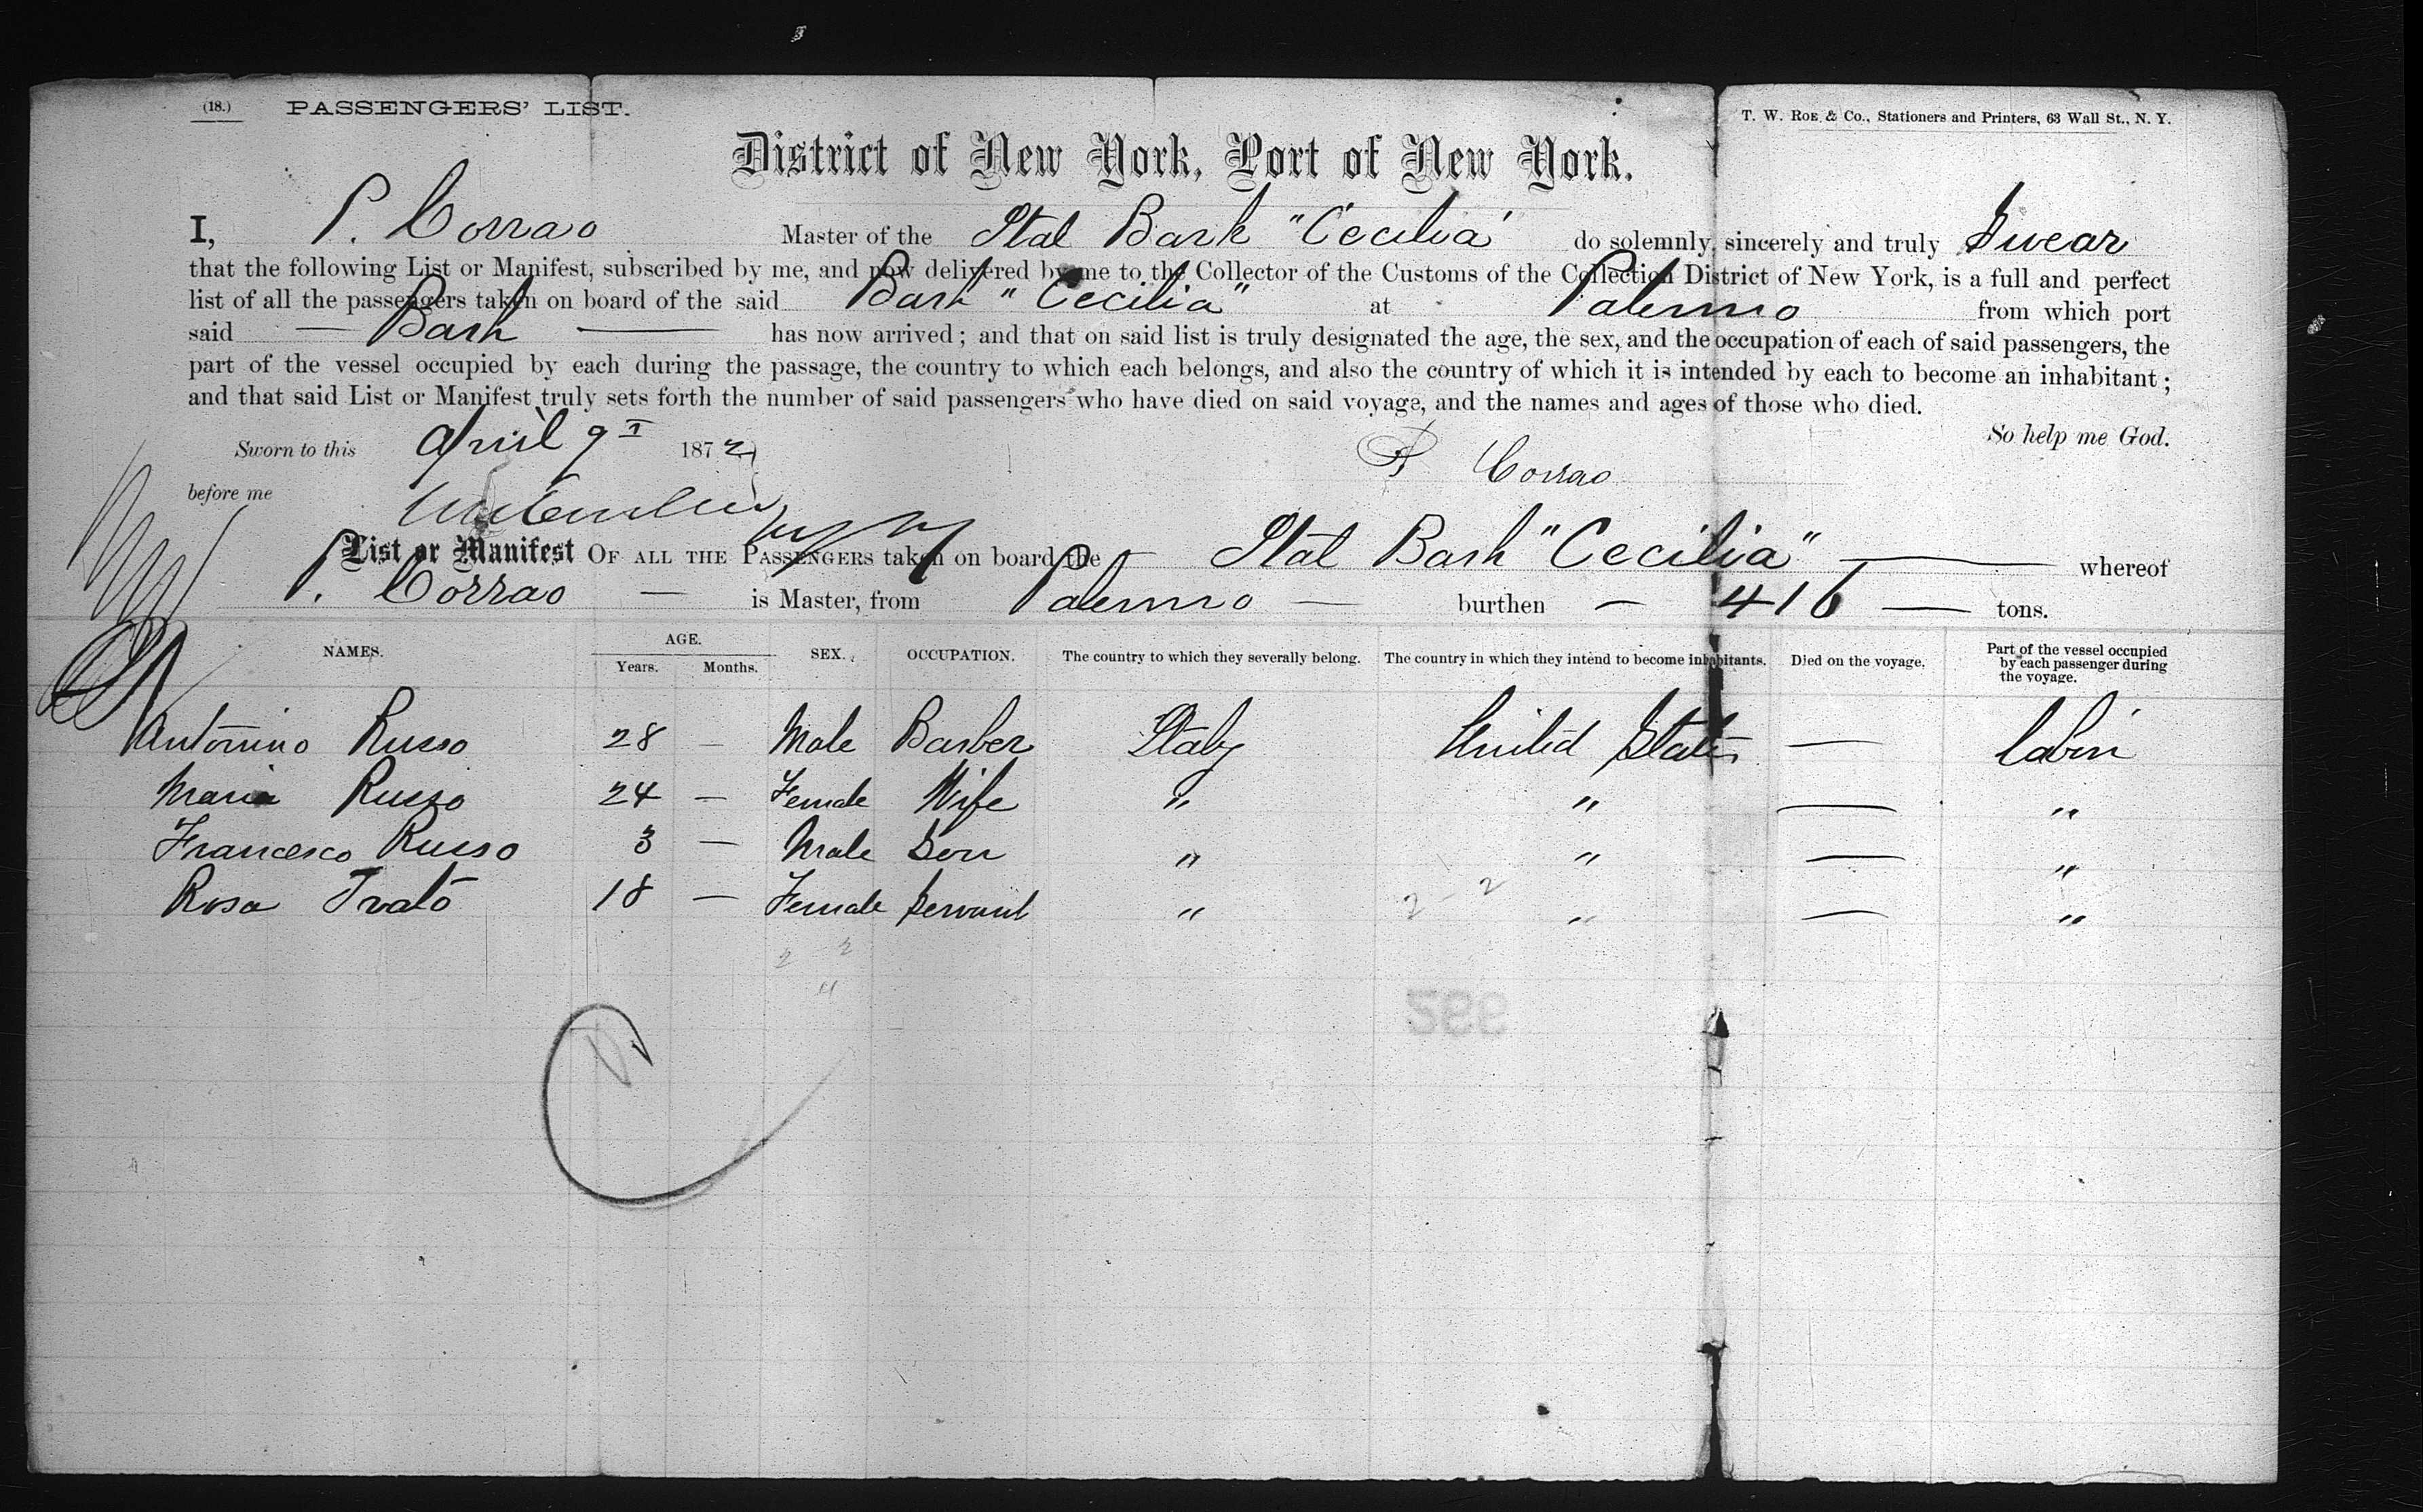 (18.) PASSENGERS' LIST.
T. W. ROE & Co., Stationers and Printers, 63 Wall St., N. Y.
District of New York, Port of New York.
I, P. Corrao Master of the Ital Bark "Cecilia" do solemnly, sincerely and truly Swear
that the following List or Manifest, subscribed by me, and now delivered by me to the Collector of the Customs of the Collection District of New York, is a full and perfect
list of all the passengers taken on board of the said Bark "Cecilia" at Palermo from which port
said — Bark — has now arrived; and that on said list is truly designated the age, the sex, and the occupation of each of said passengers, the
part of the vessel occupied by each during the passage, the country to which each belongs, and also the country of which it is intended by each to become an inhabitant;
and that said List or Manifest truly sets forth the number of said passengers who have died on said voyage, and the names and ages of those who died.
So help me God.
Sworn to this April 9 1872
P Corrao
before me
List or Manifest OF ALL THE PASSENGERS taken on board the Ital Bark "Cecilia" — whereof
P. Corrao — is Master, from Palermo — burthen — 416 — tons.
NAMES. AGE. Years. Months. SEX. OCCUPATION. The country to which they severally belong. The country in which they intend to become inhabitants. Died on the voyage. Part of the vessel occupied by each passenger during the voyage.
Antonino Russo 28 — Male Barber Italy United States — Cabin
Maria Russo 24 — Female Wife " " — "
Francesco Russo 3 — Male Son " " — "
Rosa Trato 18 — Female Servant " " — "
2 - 2
2 2
4
266